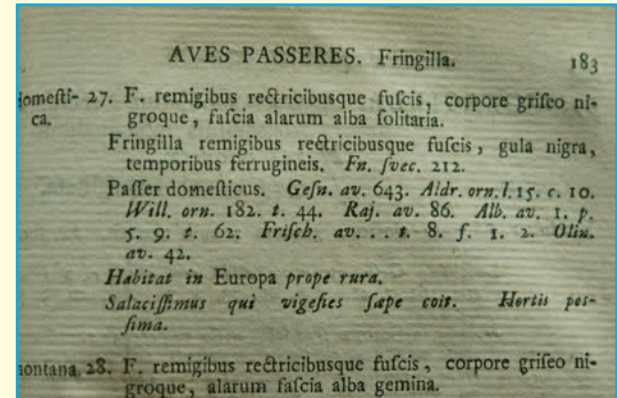 AVES PASSERES. Fringilla. 183
domeſti- 27. F. remigibus rectricibusque fuſcis, corpore griſeo ni-
ca. groque, faſcia alarum alba ſolitaria.
Fringilla remigibus rectricibusque fuſcis, gula nigra,
temporibus ferrugineis. Fn. ſvec. 212.
Paſſer domeſticus. Geſn. av. 643. Aldr. orn. l. 15. c. 10.
Will. orn. 182. t. 44. Raj. av. 86. Alb. av. 1. p.
5. 9. t. 62. Friſch. av. . . t. 8. f. 1. 2. Olin.
av. 42.
Habitat in Europa prope rura.
Salaciſſimus qui vigeſies ſæpe coit. Hortis peſ-
ſima.
montana. 28. F. remigibus rectricibusque fuſcis, corpore griſeo ni-
groque, alarum faſcia alba gemina.